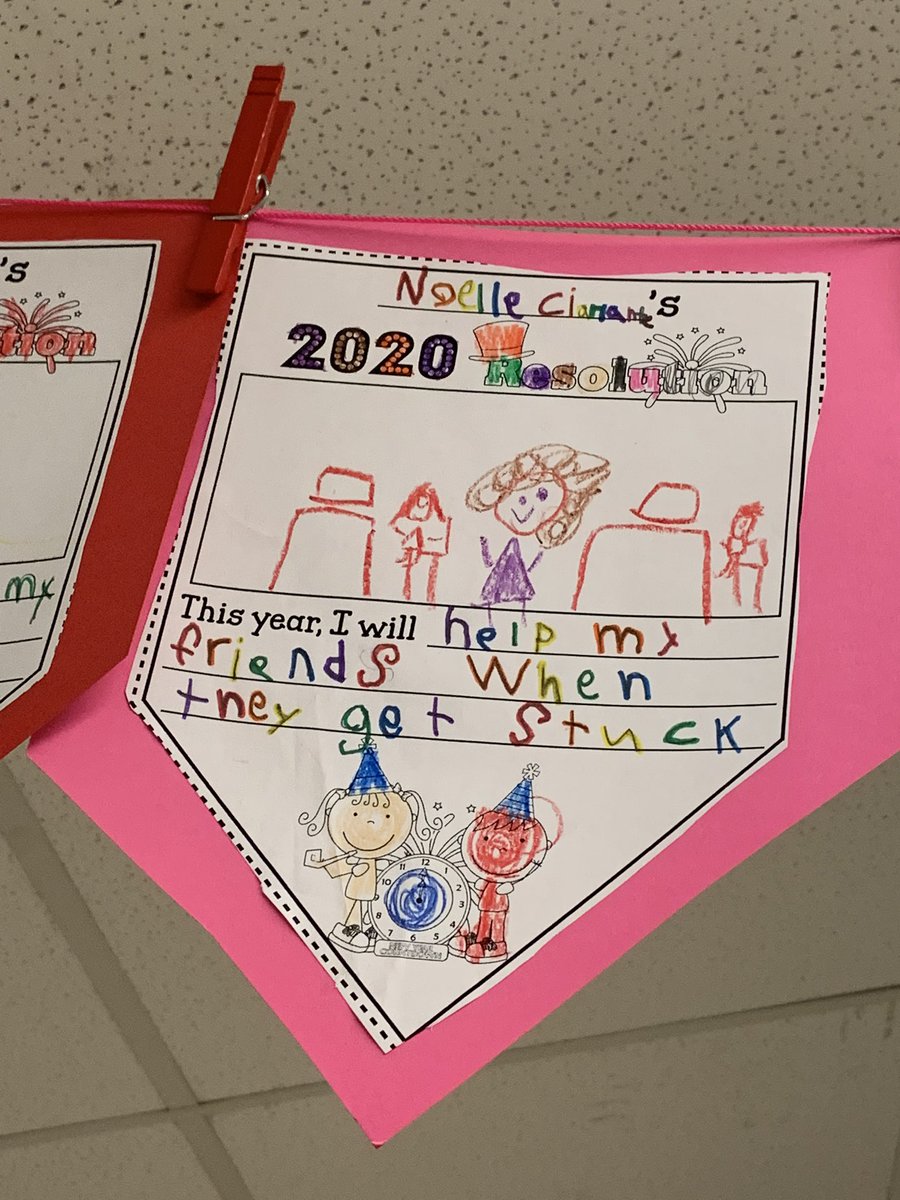 's
tion
my
Noelle Ciamante's
2020 Resolution
This year, I will help my
friends When
they get Stuck
12
1
2
3
4
5
6
7
8
9
10
11
NEW YEAR
COUNTDOWN